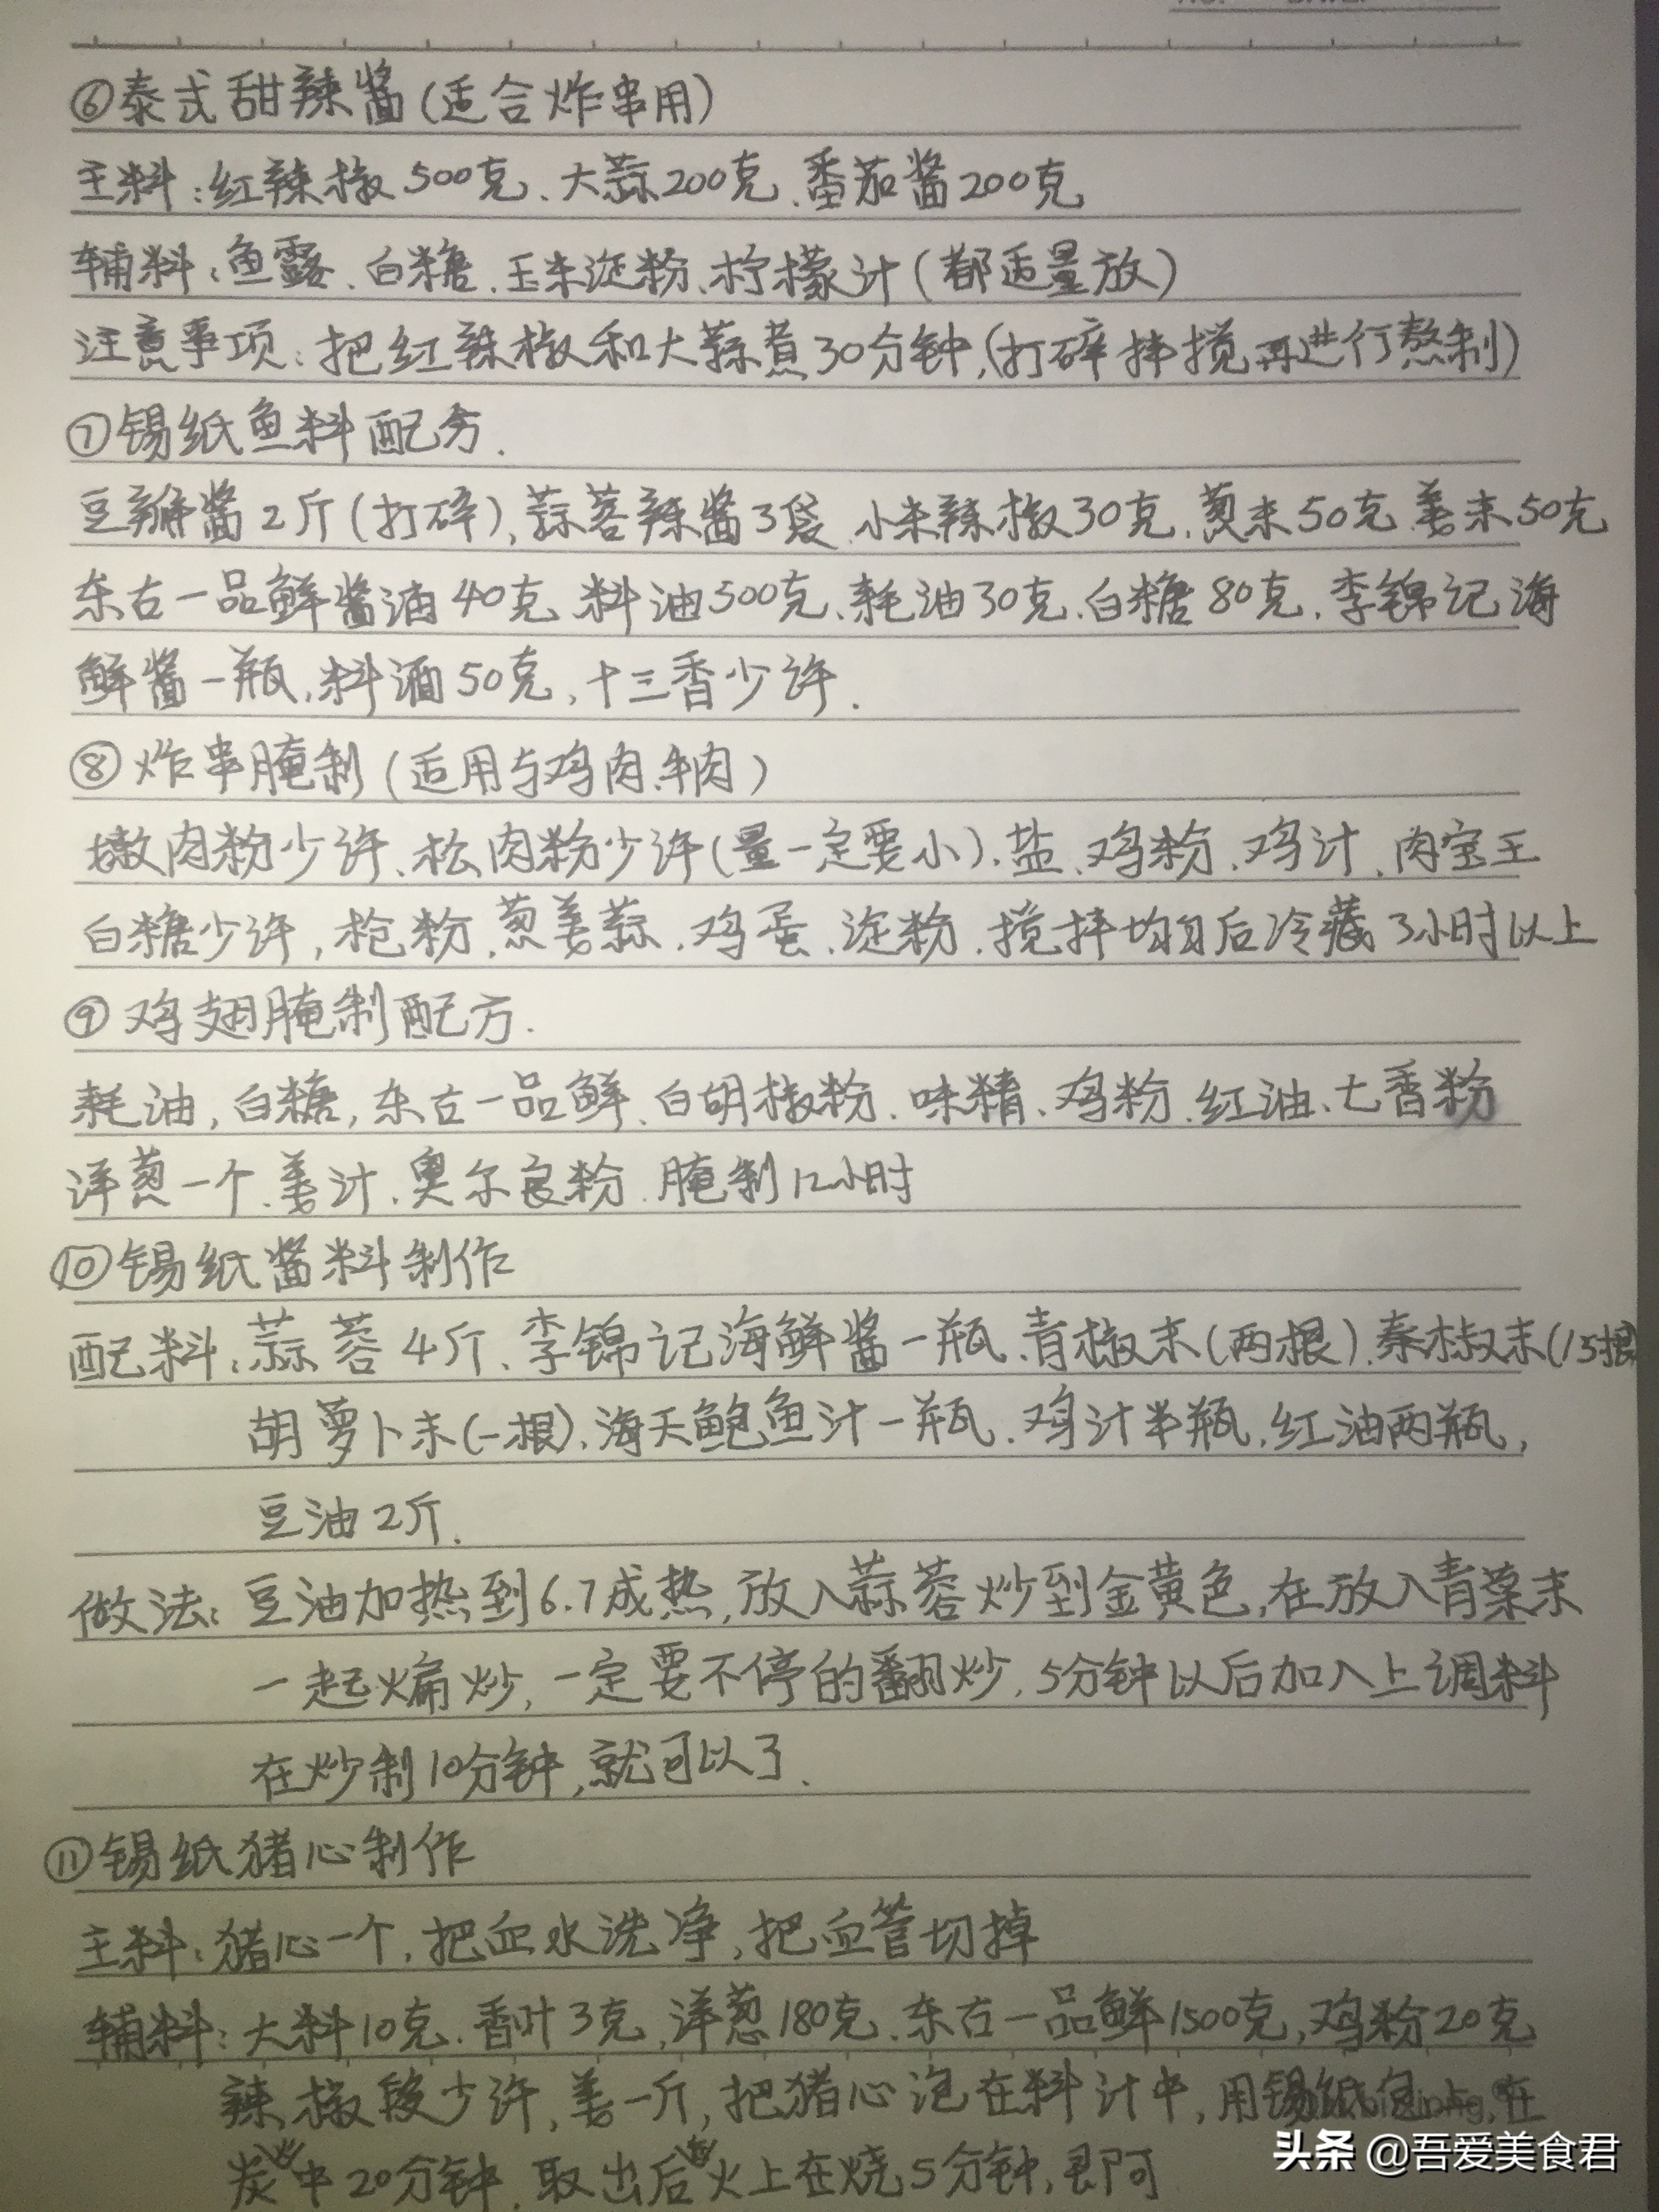 ⑥泰式甜辣酱(适合炸串用)
主料:红辣椒500克、大蒜200克、番茄酱200克
辅料:鱼露、白糖、玉米淀粉、柠檬汁(都适量放)
注意事项:把红辣椒和大蒜煮30分钟,(打碎拌搅再进行熬制)
⑦锡纸鱼料配方.
豆瓣酱2斤(打碎)、蒜蓉辣酱3袋、小米辣椒30克、葱末50克、姜末50克
东古一品鲜酱油40克、料油500克、耗油30克、白糖80克、李锦记海
鲜酱一瓶,料酒50克,十三香少许.
⑧炸串腌制(适用与鸡肉、牛肉)
嫩肉粉少许、松肉粉少许(量一定要小)、盐、鸡粉、鸡汁、肉宝王
白糖少许,枪粉、葱姜蒜、鸡蛋、淀粉、搅拌均匀后冷藏3小时以上
⑨鸡翅腌制配方.
耗油,白糖,东古一品鲜、白胡椒粉、味精、鸡粉、红油、七香粉
洋葱一个、姜汁、奥尔良粉、腌制12小时
⑩锡纸酱料制作
配料:蒜蓉4斤、李锦记海鲜酱一瓶、青椒末(两根)、秦椒末(15根)
胡萝卜末(一根)、海天鲍鱼汁一瓶、鸡汁半瓶,红油两瓶,
豆油2斤.
做法:豆油加热到6.7成热,放入蒜蓉炒到金黄色,在放入青菜末
一起煸炒,一定要不停的翻炒,5分钟以后加入上调料
在炒制10分钟,就可以了.
⑪锡纸猪心制作
主料:猪心一个,把血水洗净,把血管切掉
辅料:大料10克、香叶3克,洋葱180克、东古一品鲜1500克,鸡粉20克
辣椒段少许,姜一斤,把猪心泡在料汁中,用锡纸包上,在
炭火中20分钟,取出后火上在烧5分钟,即可
头条 @吾爱美食君